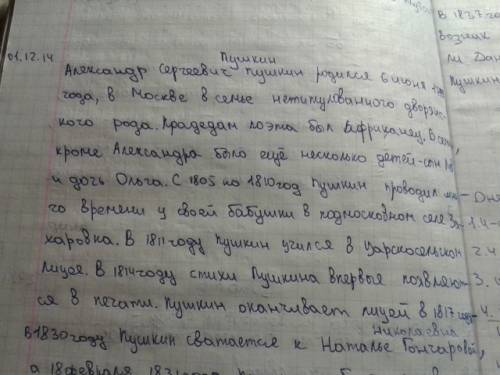 01.12.14
Пушкин
Александр Сергеевич Пушкин родился 6 июня
года, в Москве в семье нетитулованного дворянс-
кого рода. Прадедам поэта был Африканец. В сем,
кроме Александра было ещё несколько детей-сын
и дочь Ольга. С 1805 по 1810 год Пушкин проводил мно-
го времени у своей бабушки в подмосковном селе За-
харовка. В 1811 году Пушкин учился в Царскосельском
лицее. В 1814 году стихи Пушкина впервые появляют-
ся в печати. Пушкин оканчивает лицей в 1817 году
Николаевна
В 1830 году Пушкин сватается к Наталье Гончаровой,
а 18 февраля 1831 года
В 1837 го
возник
ли Дан
Пушкин
1. 4-
2. 4
3. 4
4.